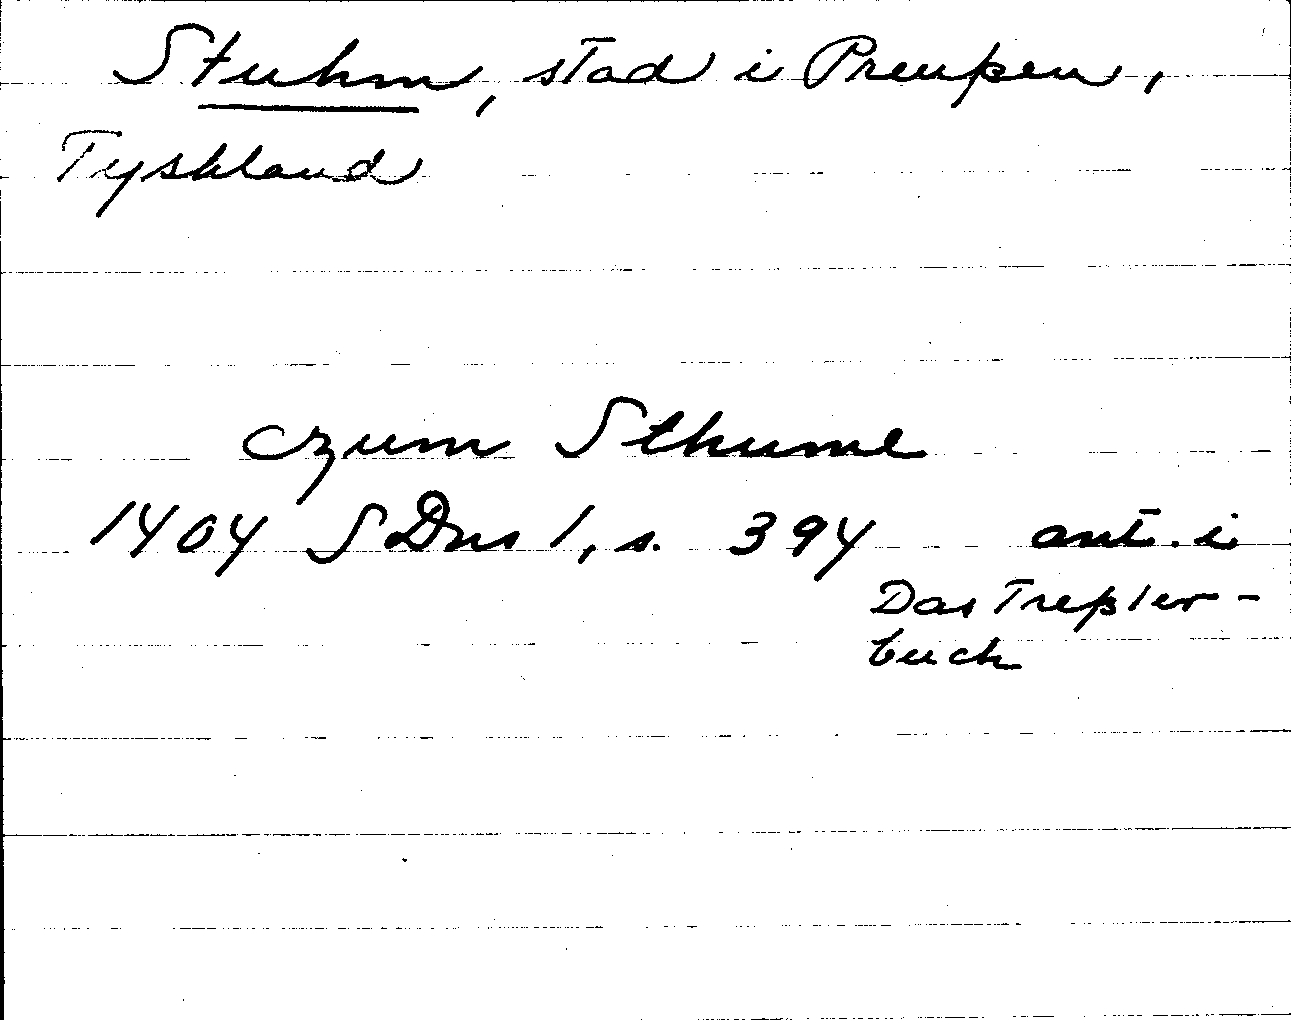 Stuhm, stad i Preußen,
Tyskland
czum Sthume
1404 SDns 1, s. 394 ant. i
Das Treßler-
buch